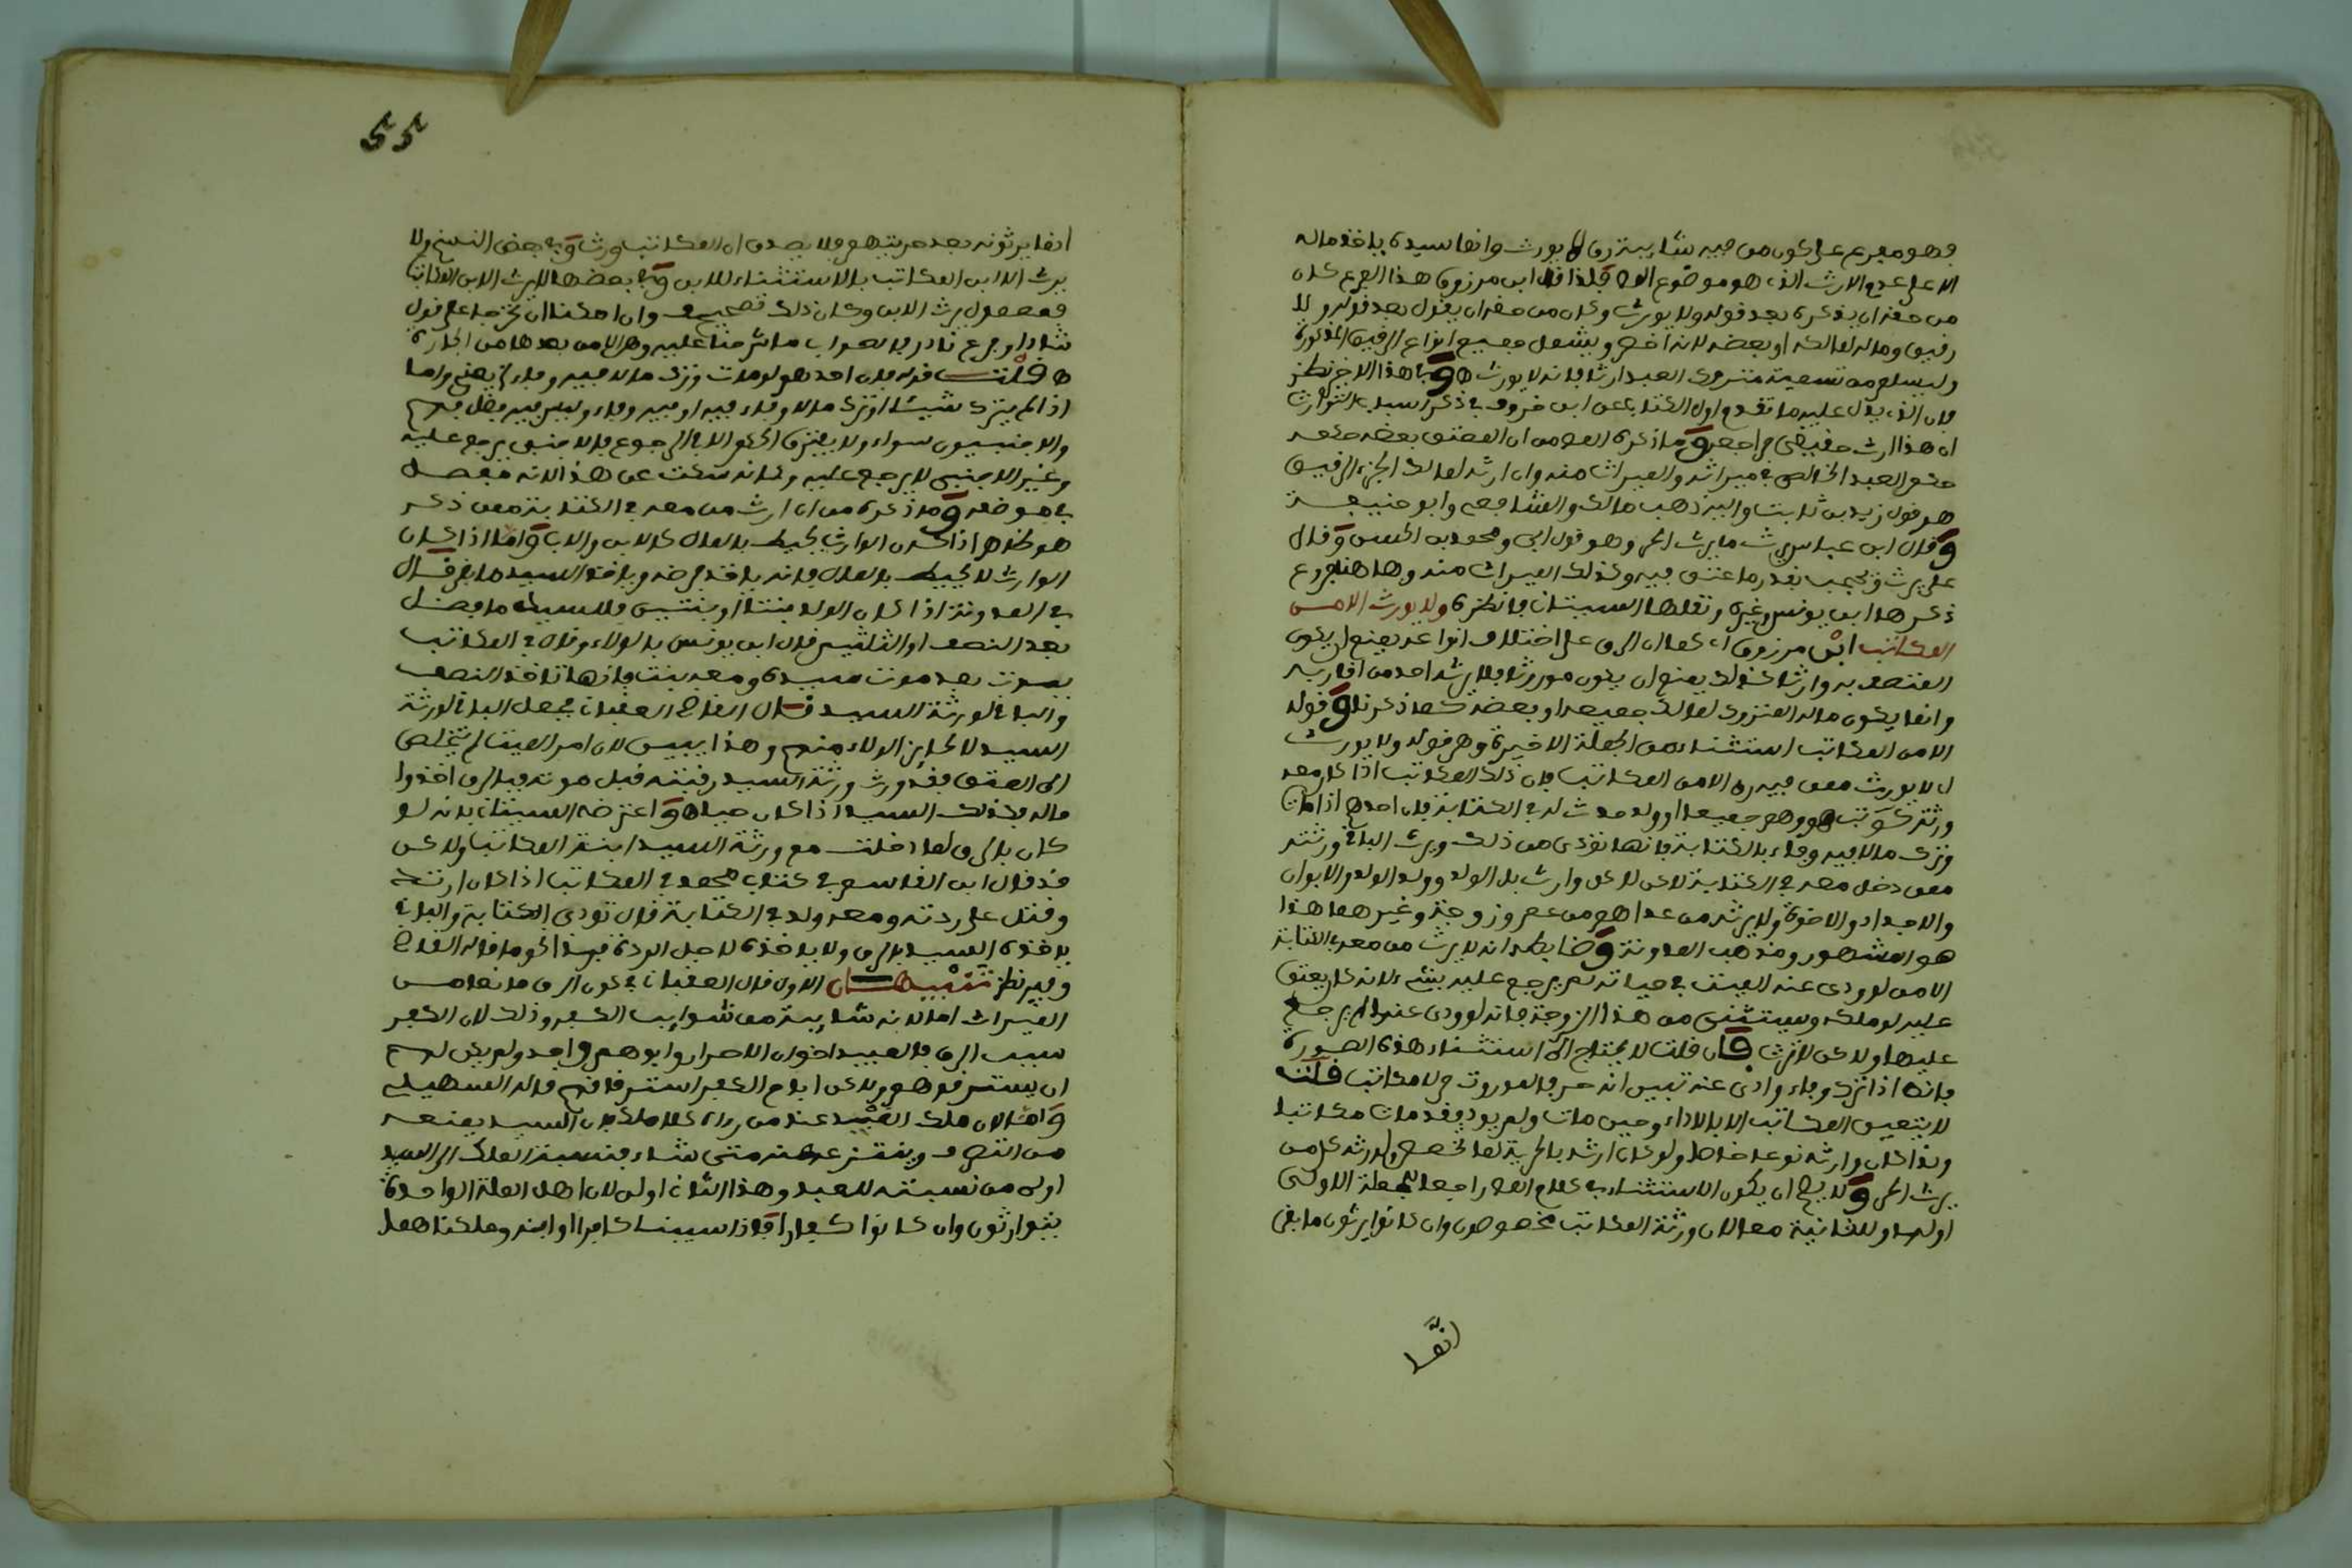 وهو مفرع على كون من فيه شائبة رق لا يورث وانما سيده ياخذ ماله
لا على عدم الارث الذي هو موضوع فلذا قال ابن مرزوق هذا الفرع كان
من حقه ان يذكره بعد قوله ولا يورث وكان من حقه ان يقول بعد قوله ولا
رقيق وماله لمالكه او بعضه لانه اخصر ويشمل جميع انواع الرقيق المذكورة
وليسلم من تسمية متروك العبد ارثا فانه لا يورث وفي هذا الاخير نظر
فان الذي يدل عليه ما تقدم اول الكتاب عن ابن خروف في ذكر اسباب التوارث
ان هذا ارث حقيقي فراجعه وما ذكره المص من ان المعتق بعضه حكمه
حكم العبد الخالص في ميراثه والميراث منه وان ارثه لمالك الجزء الرقيق
هو قول زيد بن ثابت واليه ذهب مالك والشافعي وابو حنيفة
وقال ابن عباس يرث ما يرث الحر وهو قول ابي ومحمد بن الحسن وقال
علي يرث ويحجب بقدر ما عتق فيه وكذلك الميراث منه وها هنا فروع
ذكرها ابن يونس وغيره ونقلها السيتاني فانظره ولا يورث الا من
المكاتب ابن مرزوق اي كما ان الرق على اختلاف انواعه يمنع ان يكون
المتصف به وارثا كذلك يمنع ان يكون موروثا فلا يرثه احد من اقاربه
وانما يكون ماله المتروك لمالك جميعه او بعضه كما ذكرنا وقوله
الا من المكاتب استثناء من الجملة الاخيرة وهي قوله ولا يورث
اي لا يورث ممن فيه رق الا من المكاتب فان ذلك المكاتب اذا كان معه
ورثته كوتب هو وهم جميعا او ولد حدث له في الكتابة فان احدهم اذا مات
وترك مالا فيه وفاء بالكتابة فانها تؤدى من ذلك ويرث الباقي ورثته
ممن دخل معه في الكتابة لاكن لا كل وارث بل الولد وولد الولد والابوان
والاجداد والاخوة ولا يرثه من عداهم من عم وزوجة وغيرهما هذا
هو المشهور ومذهب المدونة وضابطه انه لا يرث من معه في الكتابة
الا من لو ودى عنه الميت في حياته لم يرجع عليه بشيء لانه كان يعتق
عليه لو ملكه ويستثنى من هذا الزوجة فانه لو ودى عنها لم يرجع
عليها ولاكن لا ترث فان قلت لا يحتاج الى استثناء هذه الصورة
فانه اذا ترك وفاء وادى عنه تبين انه حر فالموروث حر لا مكاتب قلت
لا يتعين المكاتب الا بالاداء وحين مات ولم يود فقد مات مكاتبا
ولذا كان وارثه نوعا خاصا ولو كان ارثه بالحرية لما تخصص ولورثه كل من
يرث الحر ولا يصح ان يكون الاستثناء في كلام المص راجعا للجملة الاولى
اولها وللثانية معا لان ورثة المكاتب مخصوصون وان كانوا يرثون ما بقي
انما
55
انما يرثونه بعد حريتهم فلا يصدق ان المكاتب ورث وفي بعض النسخ ولا
يرث الا ابن المكاتب بالاستثناء للابن وفي بعضها لا يرث الا من المكاتب
فمعمول يرث الابن وكان ذلك تصحيف وان امكن ان يخرجا على قول
شاذ او فرع نادر فالصواب ما شرحنا عليه وهي الا من بعدها من الجارة
قلت قوله فان احدهم لو مات وترك مالا فيه وفاء واما
اذا لم يترك شيئا او ترك مالا وفاء فيه او فيه وفاء وليس فيه فضل فهم
والاجنبيون سواء ولا يفترق الحكم الا في الرجوع فالاجنبي يرجع عليه
وغير الاجنبي لا يرجع عليه وكانه سكت عن هذا لانه مفصل
في موضعه وما ذكره من ان ارث من معه في الكتابة ممن ذكر
هو ظاهر اذا كان الوارث يحيط بالمال كالابن والاب واما اذا كان
الوارث لا يحيط بالمال فانه ياخذ فرضه وياخذ السيد ما بقي قال
في المدونة اذا كان الولد بنتا او بنتين فللسيد ما فضل
بعد النصف او الثلثين قال ابن يونس بالولاء وقال في المكاتب
يموت بعد موت سيده ومعه بنت فانها تاخذ النصف
والباقي لورثة السيد قال العقباني فجعل الباقي لورثة
السيد لا لحائز الولاء منهم وهذا يبين لان امر الميت لم يتخلص
الى العتق فقد ورث ورثة السيد رقبته قبل موته فبالرق اخذوا
ماله فكذلك السيد اذا كان حيا واعترضه السيتاني بانه لو
كان بالرق لما دخلت مع ورثة السيد ابنة المكاتب ولاكن
قد قال ابن القاسم في كتاب محمد في المكاتب اذا كان ارتد
وقتل على ردته ومعه ولد في الكتابة قال تودى الكتابة والباقي
ياخذه السيد بالرق ولا ياخذه لاجل الردة فهذا نحو ما قاله
وفيه نظر تنبيهان الاول قال العقباني في كون الرق مانعا من
الميراث اما لانه شائبة من شوائب الكفر وذلك لان الكفر
سبب الرق فالعبيد اخوان الاحرار وابوهم واحد ولم يكن لهم
ان يسترقوهم ولاكن ابدع الكفر استرقاقهم قاله السهيلي
واما لان ملك العبيد عند من رءاه كلا ملك لان السيد يمنعه
من التصرف وينتزعه منه متى شاء فنسبة الملك الى السيد
اولى من نسبته للعبد وهذا الثاني اولى لان اهل الملة الواحدة
يتوارثون وان كانوا كفارا فاذا سبينا كافرا او ابنه وملكناهما